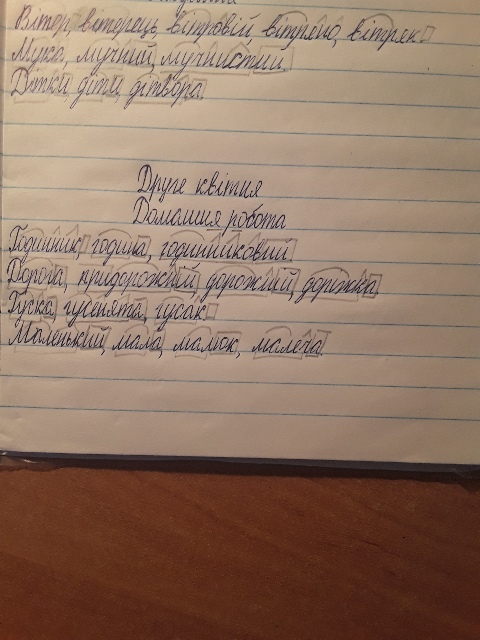 Вітер, вітерець, вітровій, вітрено, вітряк.
Мука, мучний, мучнистий.
Дітки, діти, дітвора.
Друге квітня
Домашня робота
Годинник, година, годинниковий.
Дорога, придорожній, дорожній, доріжка.
Гуска, гусенята, гусак.
Маленький, мала, малюк, малеча.